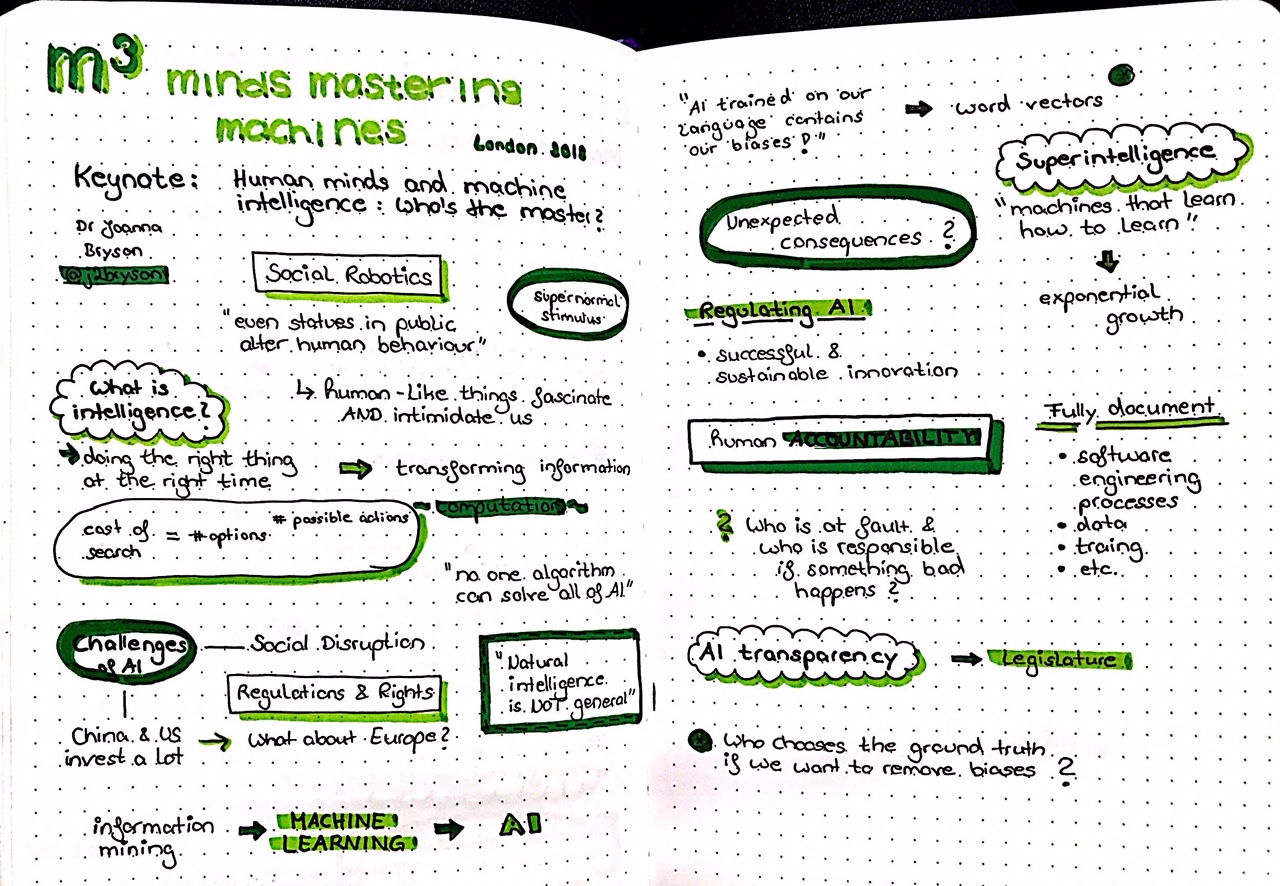 m³ minds mastering
machines
London. 2018
Keynote: Human minds and machine
intelligence: Who's the master?
Dr Joanna
Bryson
@j2bryson
Social Robotics
supernormal
stimulus
"even statues in public
alter human behaviour."
↳ human-like things fascinate
AND intimidate us
What is
intelligence?
→ doing the right thing
at the right time
⇒ transforming information
~ computation ~
cost of
search = #options # possible actions
"no one algorithm
can solve all of AI"
Challenges
of AI
Social Disruption
Regulations & Rights
"Natural
intelligence
is NOT general"
China & US
invest a lot
→ What about Europe?
information
mining
→ MACHINE
LEARNING
→ AI
"AI trained on our
language contains
our biases!"
→ word vectors
Superintelligence
"machines that learn
how to learn"
exponential
growth
Unexpected
consequences ?
Regulating AI
• successful &
sustainable innovation
human ACCOUNTABILITY
Fully document
• software
engineering
processes
• data
• traing
• etc.
? Who is at fault &
who is responsible
if something bad
happens ?
AI transparency
→ Legislature
Who chooses the ground truth
if we want to remove biases ?